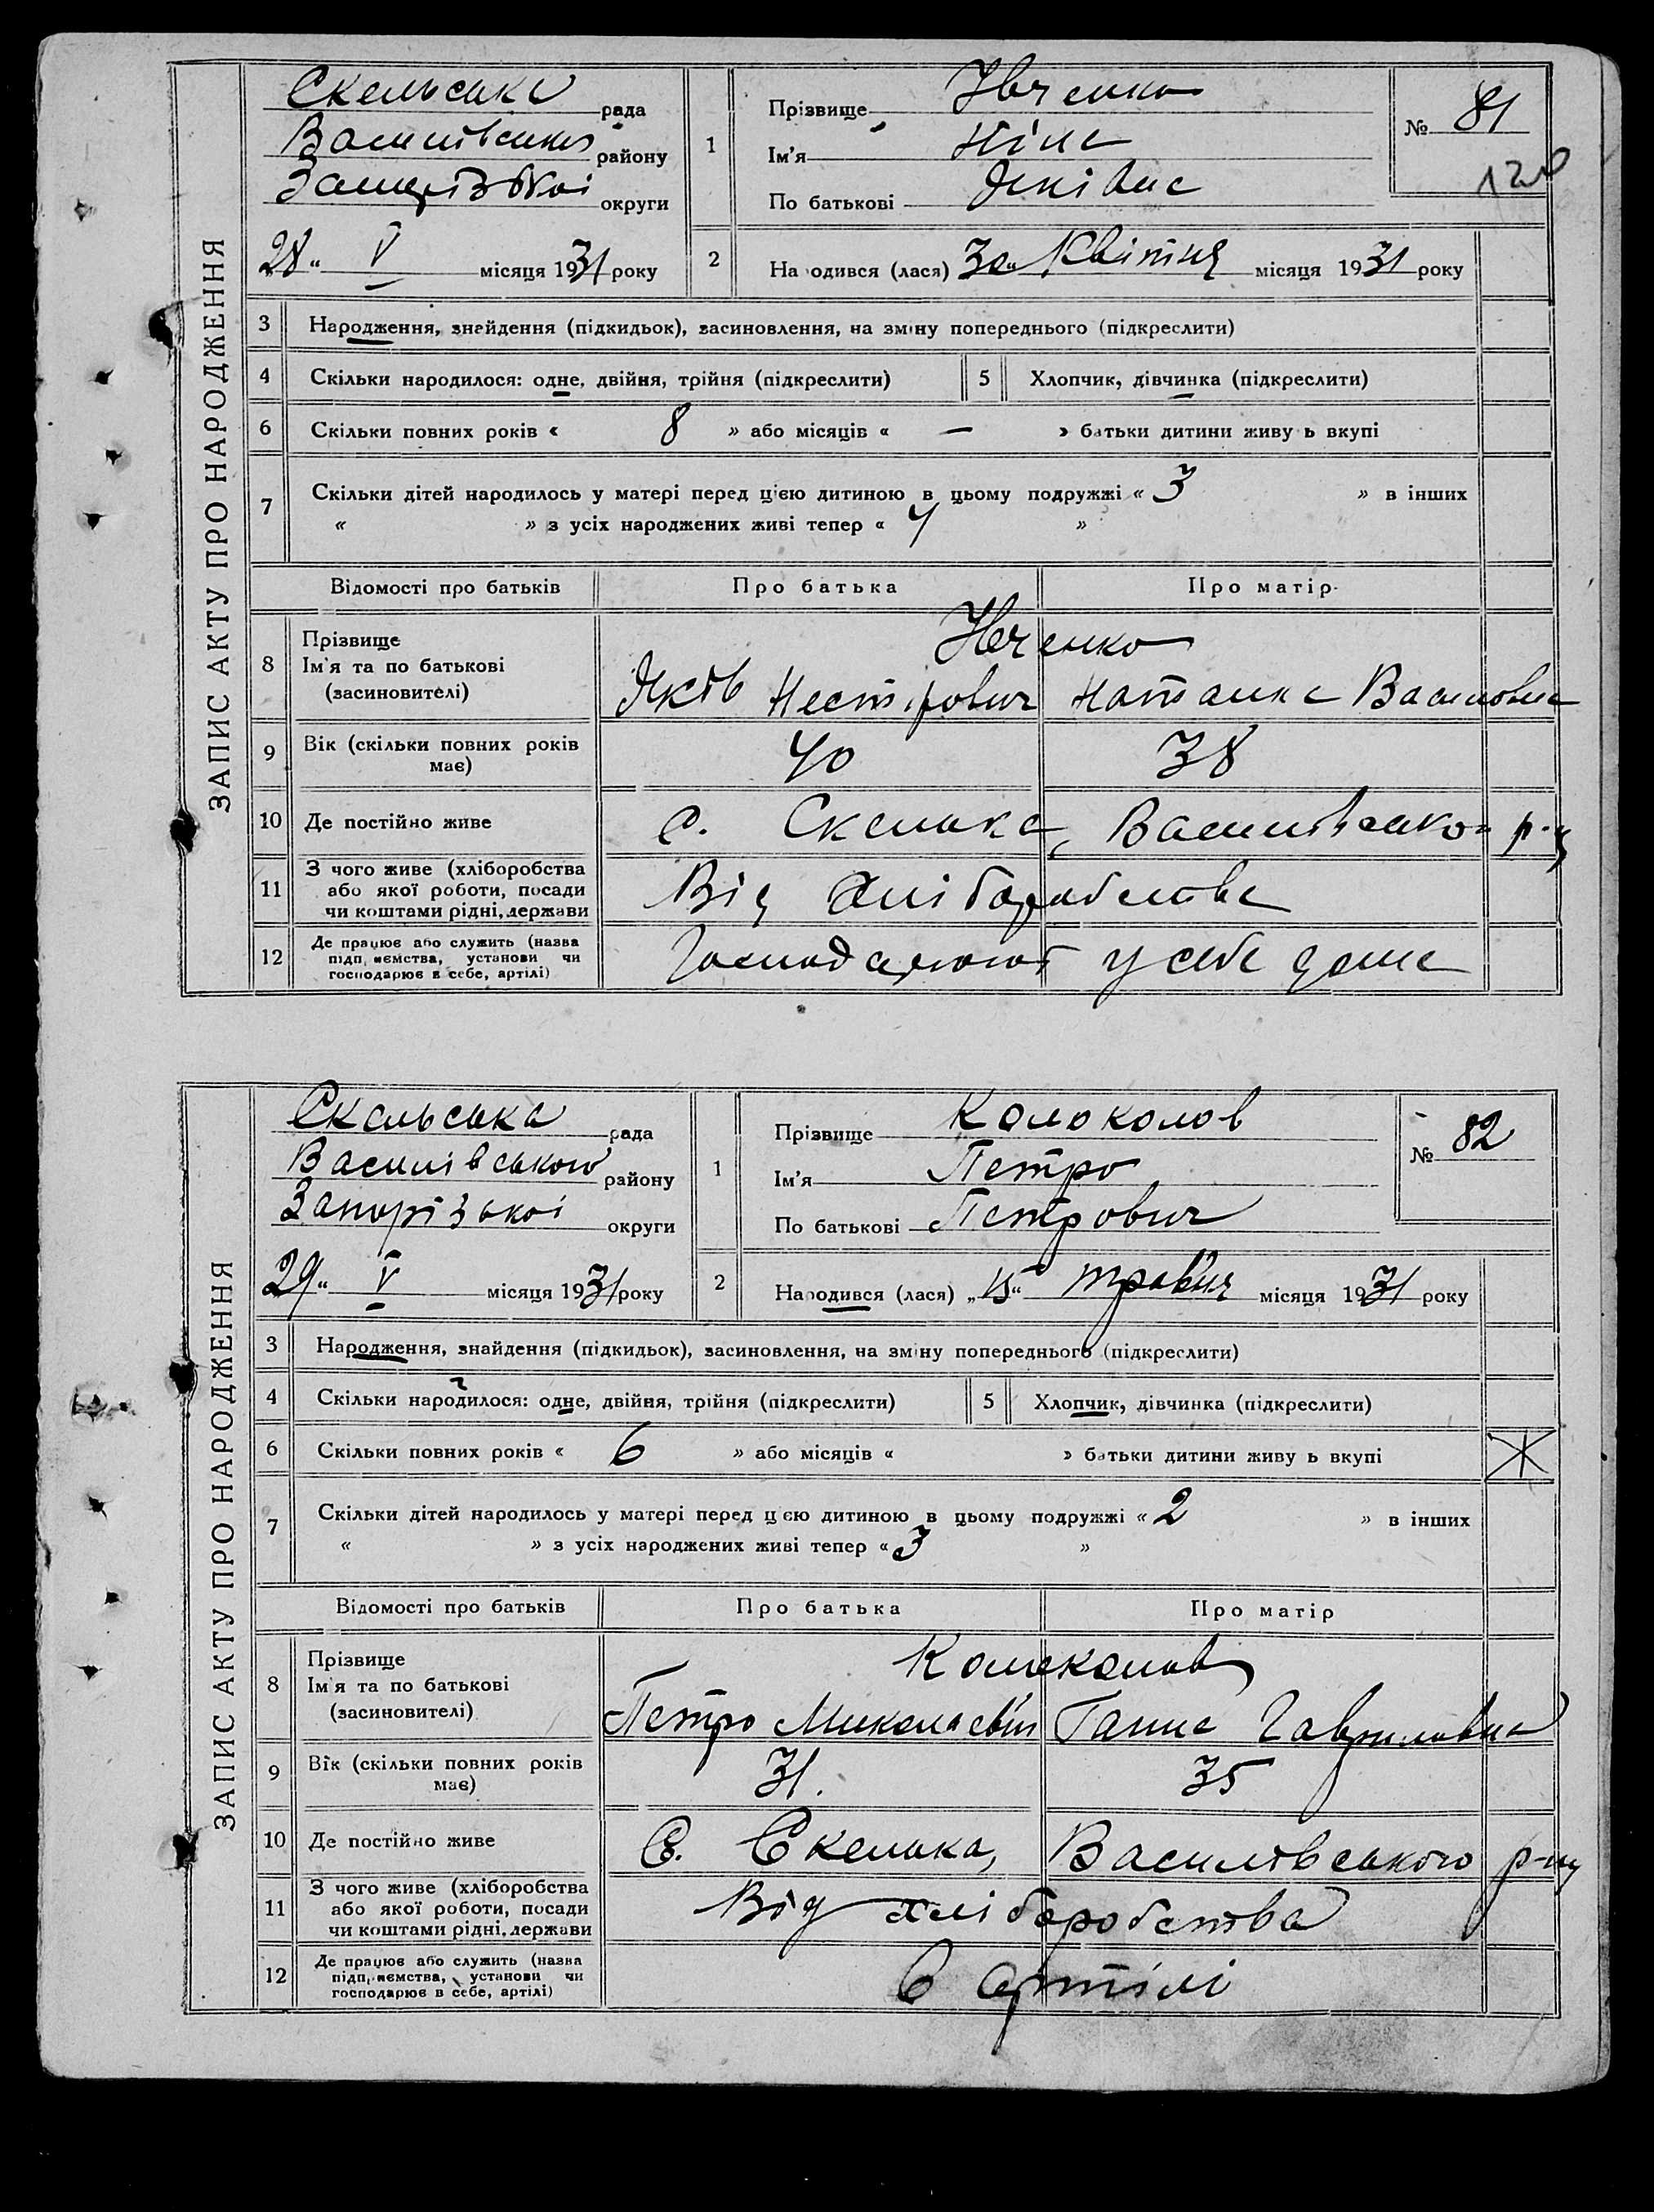 ЗАПИС АКТУ ПРО НАРОДЖЕННЯ
Скельська рада
Василівського району
Запорізької округи
28 „ V місяця 1931 року
1 Прізвище Івченко
Ім'я Ніна
По батькові Яківна
№ 81
120
2 Народився (лася) 30 „ Квітня місяця 1931 року
3 Народження, знайдення (підкидьок), засиновлення, на зміну попереднього (підкреслити)
4 Скільки народилося: одне, двійня, трійня (підкреслити) 5 Хлопчик, дівчинка (підкреслити)
6 Скільки повних років « 8 » або місяців « — » батьки дитини живуть вкупі
7 Скільки дітей народилось у матері перед цією дитиною в цьому подружжі « 3 » в інших
« » з усіх народжених живі тепер « 4 »
Відомості про батьків Про батька Про матір
8 Прізвище
Ім'я та по батькові
(засиновителі)
Івченко
Яків Нестерович Наталка Василовна
9 Вік (скільки повних років має) 40 38
10 Де постійно живе с. Скелька, Василівсько- р-ну
11 З чого живе (хліборобства
або якої роботи, посади
чи коштами рідні, держави
Від хліборобства
12 Де працює або служить (назва
підприємства, установи чи
господарює в себе, артілі)
Господарюют у себе дома
ЗАПИС АКТУ ПРО НАРОДЖЕННЯ
Скельська рада
Василівського району
Запорізької округи
29 „ V місяця 1931 року
1 Прізвище Колоколов
Ім'я Петро
По батькові Петрович
№ 82
2 Народився (лася) „ 15 “ травня місяця 1931 року
3 Народження, знайдення (підкидьок), засиновлення, на зміну попереднього (підкреслити)
4 Скільки народилося: одне, двійня, трійня (підкреслити) 5 Хлопчик, дівчинка (підкреслити)
6 Скільки повних років « 6 » або місяців « » батьки дитини живуть вкупі
7 Скільки дітей народилось у матері перед цією дитиною в цьому подружжі « 2 » в інших
« » з усіх народжених живі тепер « 3 »
Відомості про батьків Про батька Про матір
8 Прізвище
Ім'я та по батькові
(засиновителі)
Колоколов
Петро Миколаевіч Ганна Гавриловна
9 Вік (скільки повних років має) 31. 35
10 Де постійно живе С. Скелька, Василівського р-ну
11 З чого живе (хліборобства
або якої роботи, посади
чи коштами рідні, держави
Від хліборобства
12 Де працює або служить (назва
підприємства, установи чи
господарює в себе, артілі)
В артілі